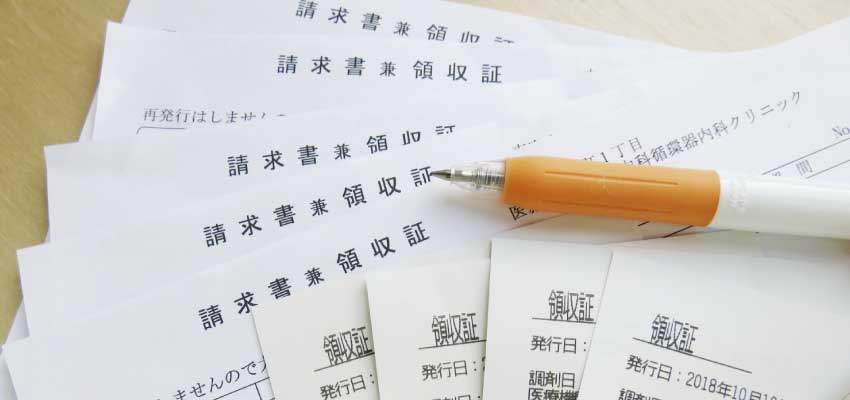 請求書兼領収証
請求書兼領収証
再発行はしませんの
請求書兼領収証
請求書兼領収証
請求書兼領収証
しませんので
1丁目
科循環器内科クリニック
No
間
領収証
発行日:
領収証
発行日:
領収証
発行日:
調剤日
医療機
領収証
発行日:2018年10月